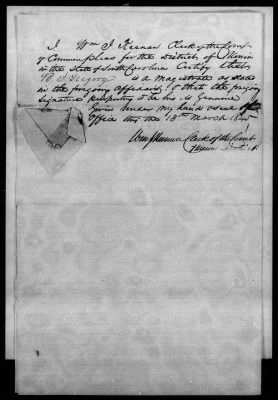 I Wm J Keenan Clerk of the Court
of Common pleas for the District of Union
in the State of South Carolina Certify that
B. J. Gregory is a magistrate as stated
in the forgoing Affidavit, & that the forgoing
signature purporting to be his is Genuine
Given under my hand & seal of
Office this the 13th March 1845
Wm J Keenan Clerk of the Court
Union District